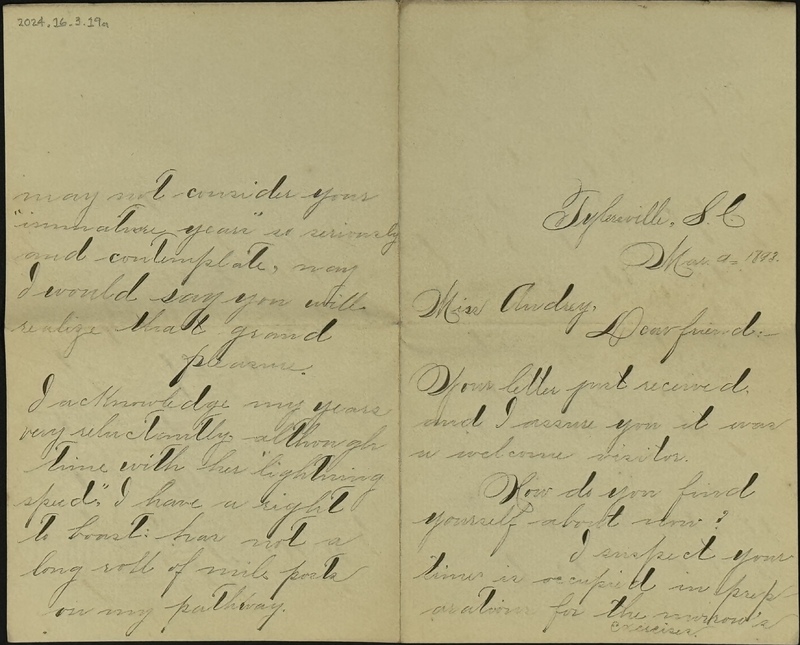 2024.16.3.19a
may not consider your
"immature years" so seriously
and contemplate, nay
I would say you will
realize that grand
pleasure.
I acknowledge my years
very reluctantly, although
time with her "lightning
speed", I have a right
to boast: has not a
long roll of mile posts
on my pathway.
Tylersville, S.C
Mar. 9, 1893.
Miss Audrey,
Dear friend:—
Your letter just received,
and I assure you it was
a welcome visitor.
How do you find
yourself about now?
I suspect your
time is occupied in prep-
arations for the morrow's
exercises.